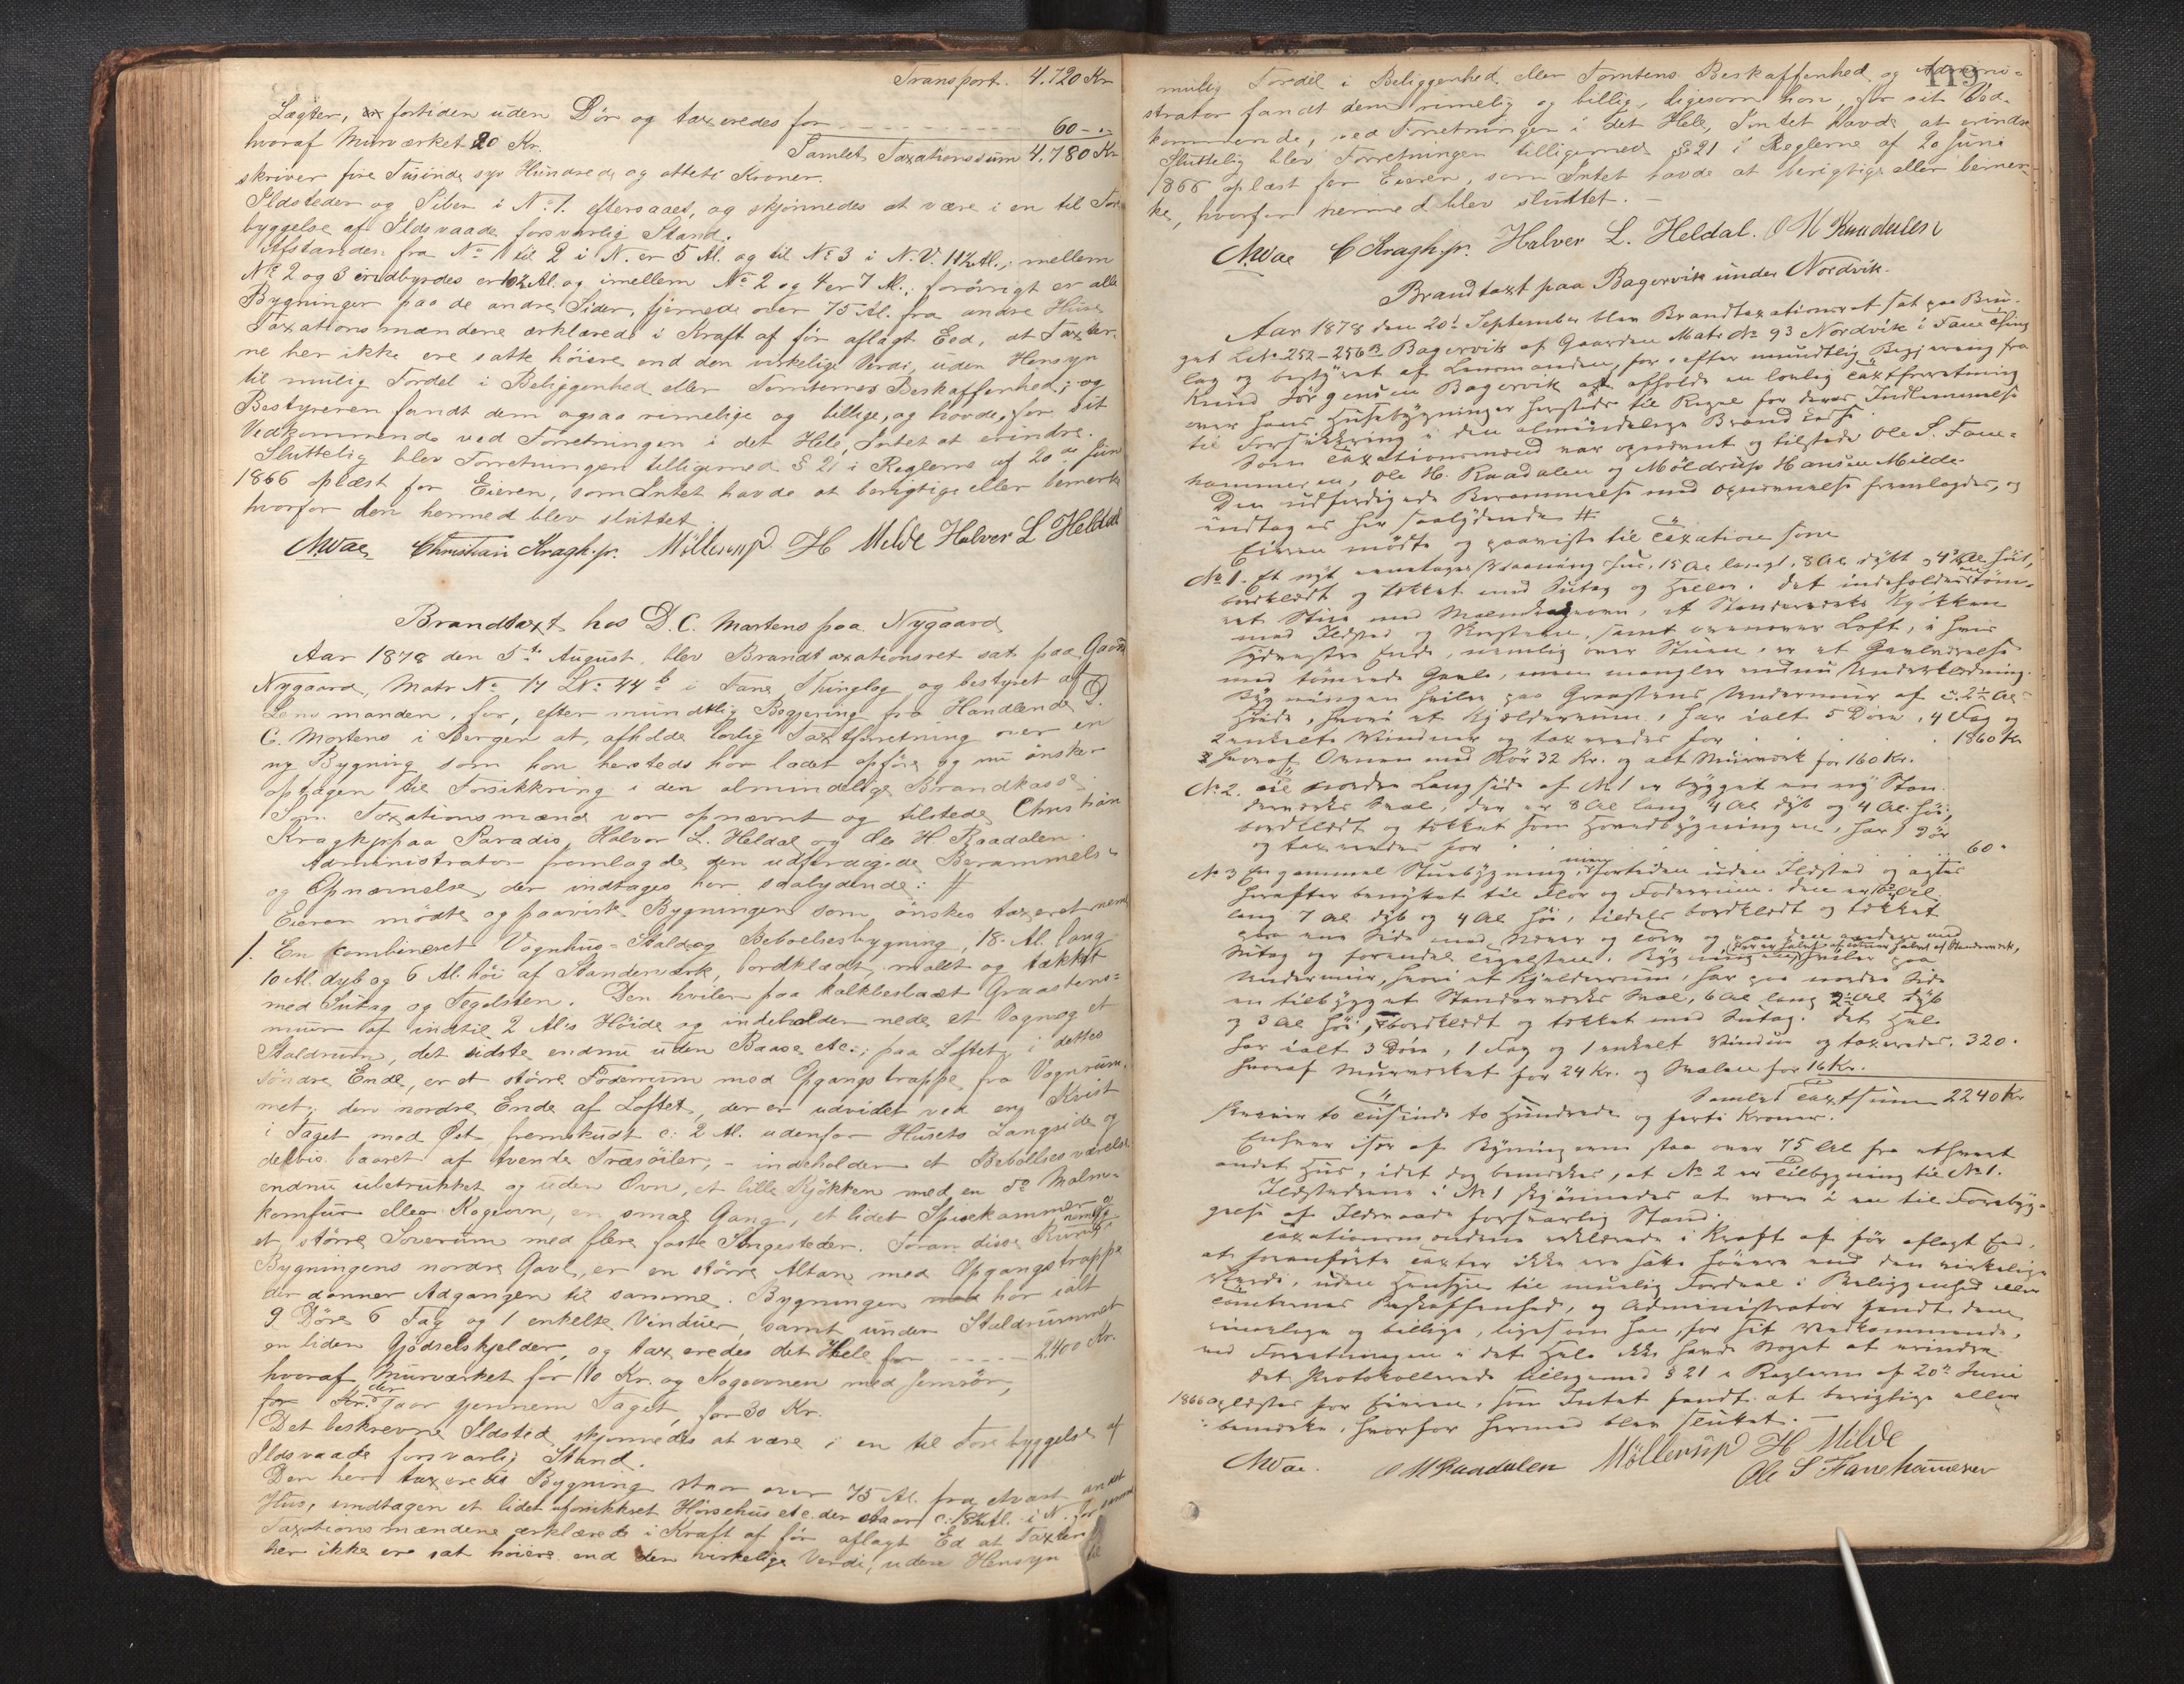 Transport. 4.720 Kr
Lægter, er fortiden uden Dør og taxeredes for 60 - "
hvoraf Murværket 20 Kr. Samlet Taxationssum 4.780 Kr
skriver fire Tusinde syv Hundrede og otteti Kroner.
Ildsteder og Piben i No 1. eftersaaes, og skjønnedes at være i en til Fore-
byggelse af Ildsvaade forsvarlig Stand.
Afstanden fra No 1 til 2 i N. er 5 Al. og til No 3 i N.V. 11½ Al., mellem
No 2 og 3 indbyrdes er 10½ Al. og imellem No 2 og 4 er 7 Al.; forøvrigt er alle
Bygninger paa de andre Sider, fjernede over 75 Al. fra andre Huse
Taxationsmændene erklærede i Kraft af før aflagt Eed, at Taxter-
ne her ikke ere satte høiere end den virkelige Verdi, uden Hensyn
til mulig Fordel i Beliggenhed eller Tomternes Beskaffenhed; og
Bestyreren fandt dem ogsaa rimelige og billige, og havde, for sit
Vedkommende ved Forretningen i det Hele, Intet at erindre.
Sluttelig blev Forretningen tilligemed § 21 i Reglerne af 20de Juni
1866 oplæst for Eieren, som Intet havde at berigtige eller bemerke
hvorfor den hermed blev sluttet.
Christian Kragh jr. Møllerup H Milde Halver L Heldal
Brandtaxt hos D. C. Martens paa Nygaard
Aar 1878 den 5te August, blev Brandtaxationsret sat paa Gaard
Nygaard, Matr No 14 LNo 44 b i Fane Thinglag og bestyret af
Lensmanden, for, efter mundtlig Begjering fra Handlende D.
C. Martens i Bergen at, afholde lovlig Taxtforretning over en
ny Bygning som han hersteds har ladet opføre og nu ønsker
optagen til Forsikkring i den almindelige Brandkasse.
Som Taxationsmænd var opnævnt og tilstede Christian
Kragh jr paa Paradis, Halvor L. Heldal og Ole H. Raadalen.
Administrator fremlagde den udferdigede Berammelse
og Opnævnelse, der indtages her saalydende: #
Eieren mødte og paaviste Bygningen som ønskes taxeret nem
1. En kombineret Vognhus- Stald og Beboelsesbygning, 18. Al. lang
10 Al. dyb og 6 Al. høi af Standerverk, bordklædt, malet og tækket
med Sutag og Tegelsten. Den hviler paa kalkbeslaaet Graastens-
muur af indtil 2 Al's Høide og indeholder nede, et Vogn og et
Staldrum, det sidste endnu uden Baase etc:; paa Loftet, i dettes
søndre Ende, er et større Foderrum med Opgangstrappe fra Vognrum-
met, den nordre Ende af Loftet, der er udvidet ved en Kvist
i Taget mod Øst, fremskudt c: 2 Al. udenfor Husets Langside og
delvis baaret af tvende Træsøiler, - indeholder et Beboelsesværelse
endnu ubetrukket og uden Ovn, et lille Kjøkken med en do Malm-
komfur eller Kogeovn, en smal Gang, et lidet Spisekammer og
et større Soverum med flere faste Sengesteder. Foran disse Rum, i
Bygningens nordre Gavl, er en større Altan, med Opgangstrappe
der danner Adgangen til samme. Bygningen har ialt
9 Døre 6 Fag og 1 enkelte Vinduer, samt under Staldrummet
en liden Gjødselskjelder, og taxeredes det Hele for 2400 Kr.
hvoraf Murværket for 110 Kr. og Kogeovnen med Jernrør,
der gaar gjennem Taget, for 30 Kr.
Det beskrevne Ildsted skjønnedes at være i en til Forebyggelse af
Ildsvaade forsvarlig Stand.
Den her taxerede Bygning staar over 75 Al. fra ethvert andet
Hus, undtagen et lidet uforsikkret Hønsehus etc der staar c: 18½ Al. i N. for samme
Taxationsmændene erklærede i Kraft af før aflagt Ed at Taxten
her ikke ere sat høiere end den virkelige Verdi, uden Hensyn til
119
mulig Fordel i Beliggenhed eller Tomtens Beskaffenhed og Admini-
strator fandt dem rimelig og billig, ligesom han, for sit Ved-
kommende, ved Forretningen i det Hele, Intet havde at erindre
Sluttelig blev Forretningen tilligemed § 21 i Reglerne af 20 Juni
1866 oplæst for Eieren, som Intet havde at berigtige eller bemer-
ke, hvorfor hermed blev sluttet. -
C Kragh jr. Halver L. Heldal. O H Raadalen
Brandtaxt paa Bagervik under Nordvik.
Aar 1878 den 20de September blev Brandtaxationsret sat paa Bru-
get LNo 252-256 B Bagervik af Gaarden Matr No 93 Nordvik i Fane Thing
lag og bestyret af Lensmanden, for, efter mundtlig Begjering fra
Knud Jørgensen Bagervik at afholde en lovlig Taxtforretning
over hans Husebygninger hersteds til Regel for deres Indlemmelse
til Forsikkring i den almindelige Brandkasse.
Som Taxationsmænd var opnævnt og tilstede Ole S. Fane-
hammeren, Ole H. Raadalen og Møldrup Hansen Milde.
Den udferdigede Berammelse med Opnævnelse fremlagdes, og
indtages her saalydende #
Eieren mødte og paaviste til Taxation som
No 1. Et nyt eenetages Vaaningshus, 15 Al langt, 8 Al dybt og 4½ Al høit,
bordklædt og tækket med Sutag og Heller. Det indeholder en tøm-
ret Stue med Malmkogeovn, et Standerverks Kjøkken
med Ildsted og Skorsteen, samt ovenover Loft, i hvis
sydvestre Ende, nemlig over Stuen, er et Gavlværelse
med tømrede Gavle, men mangler endnu Underklædning.
Bygningen hviler paa Graastens Undermur af c: 2½ Al
Høide, hvori et Kjælderrum, har ialt 5 Døre, 4 Fag og
2 enkelte Vinduer og taxeredes for 1860 Kr
hvoraf Ovnen med Rør 32 Kr. og alt Murværk for 160 Kr.
No 2. Til nordre Langside af No 1 er bygget en ny Stan
derverks Sval, der er 8 Al lang 4 Al dyb og 4 Al. høi,
bordklædt og tækket som Hovedbygningen, har 1 Dør
og taxeredes for 60 "
No 3 En gammel Stuebygning, fortiden uden Ildsted og agtes
herefter benyttet til Flor og Foderrum. Den er 10½ Al
lang 7 Al dyb og 4 Al høi, tildels bordklædt og tækket
paa ene Side med Næver og Torv og paa den anden med
Sutag og forendel Tegelsten. Bygningen, der er halvt af Tømmer halvt af Standerverk, hviler paa
Undermur, hvori et Kjælderrum, har paa nordre Side
en tilbygget Standerverks Sval, 6 Al lang 2½ Al dyb
og 3 Al høi, bordklædt og tækket med Sutag. Det Hele
har ialt 3 Døre, 1 Fag og 1 enkelt Vindue og taxeredes. 320 "
hvoraf Murverket for 24 Kr. og Svalen for 16 Kr.
Samlet Taxtsum 2240 Kr
skriver to Tusinde to Hundrede og førti Kroner.
Enhver især af Bygningerne staa over 75 Al fra ethvert
andet Hus, idet dog bemerkes, at No 2 er Tilbygning til No 1.
Ildstederne i No 1 skjønnedes at være i en til Forebyg-
gelse af Ildsvaade forsvarlig Stand.
Taxationsmændene erklærede i Kraft af før aflagt Eed,
at foranførte Taxter ikke ere satte høiere end den virkelige
Værdi, uden Hensyn til muelig Fordeel i Beliggenhed eller
Tomternes Beskaffenhed, og Administrator fandt dem
rimelige og billige, ligesom han, for sit Vedkommende,
ved Forretningen i det Hele ikke havde Noget at erindre
Det Protokollerede tilligemed § 21 i Reglerne af 20de Juni
1866 oplæstes for Eieren, som Intet fandt at berigtige eller
bemerke, hvorfor hermed blev sluttet. -
O H Raadalen Møllerup H Milde
Ole S Fanehameren